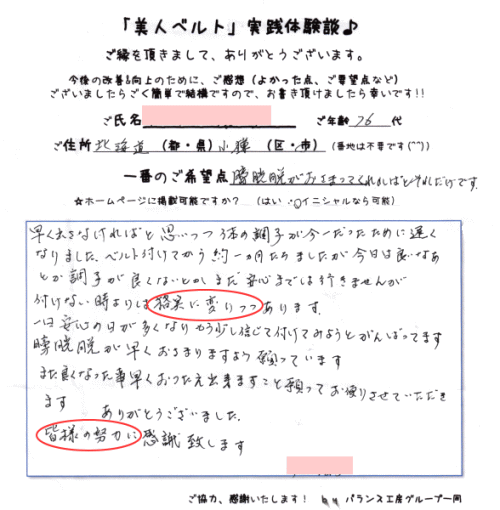 「美人ベルト」実践体験談♪
ご縁を頂きまして、ありがとうございます。
今後の改善&向上のために、ご感想（よかった点、ご要望点など）
ございましたらごく簡単で結構ですので、お書き頂けましたら幸いです!!
ご氏名 ご年齢 76 代
ご住所 北海道（都・県）小樽（区・市）（番地は不要です(^^)）
一番のご希望点 膀胱脱がおさまってくれればとそれだけです.
☆ホームページに掲載可能ですか？（はい ・○イニシャルなら可能）
早く出さなければと思いつつ 体の調子が今一だったために遅く
なりました、ベルト付けてから約一ヶ月たちましたが今日は良いなあ
とか調子が良くないとかまだ安心までは行きませんが
付けない時よりは 確実に変りつつあります.
一日安心の日が多くなりもう少し信じて付けてみようとがんばってます
膀胱脱が早くおさまりますよう願っています
また良くなった事早くおつたえ出来ますこと願ってお便りさせていただき
ます ありがとうございました.
皆様の努力に感謝致します
ご協力、感謝いたします！ by バランス工房グループ一同